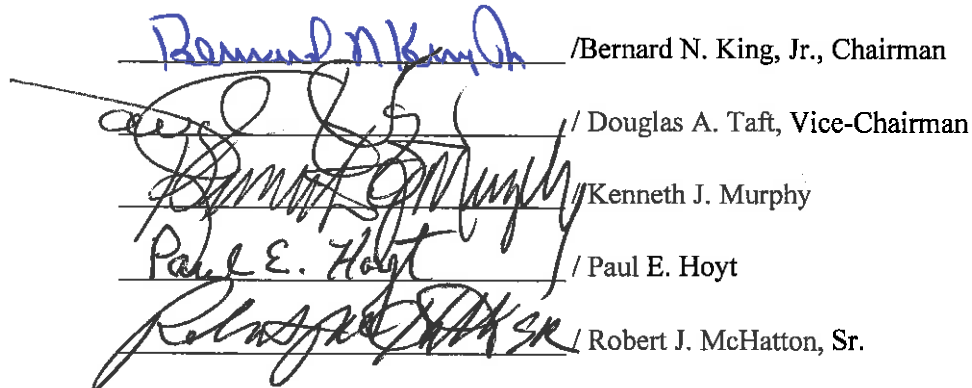 Bernard N King Jr /Bernard N. King, Jr., Chairman
/ Douglas A. Taft, Vice-Chairman
Kenneth J Murphy /Kenneth J. Murphy
Paul E. Hoyt / Paul E. Hoyt
Robert J McHatton SR / Robert J. McHatton, Sr.